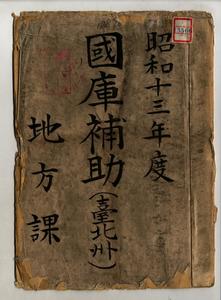 昭和十三年度
國庫補助(臺北州)
地方課